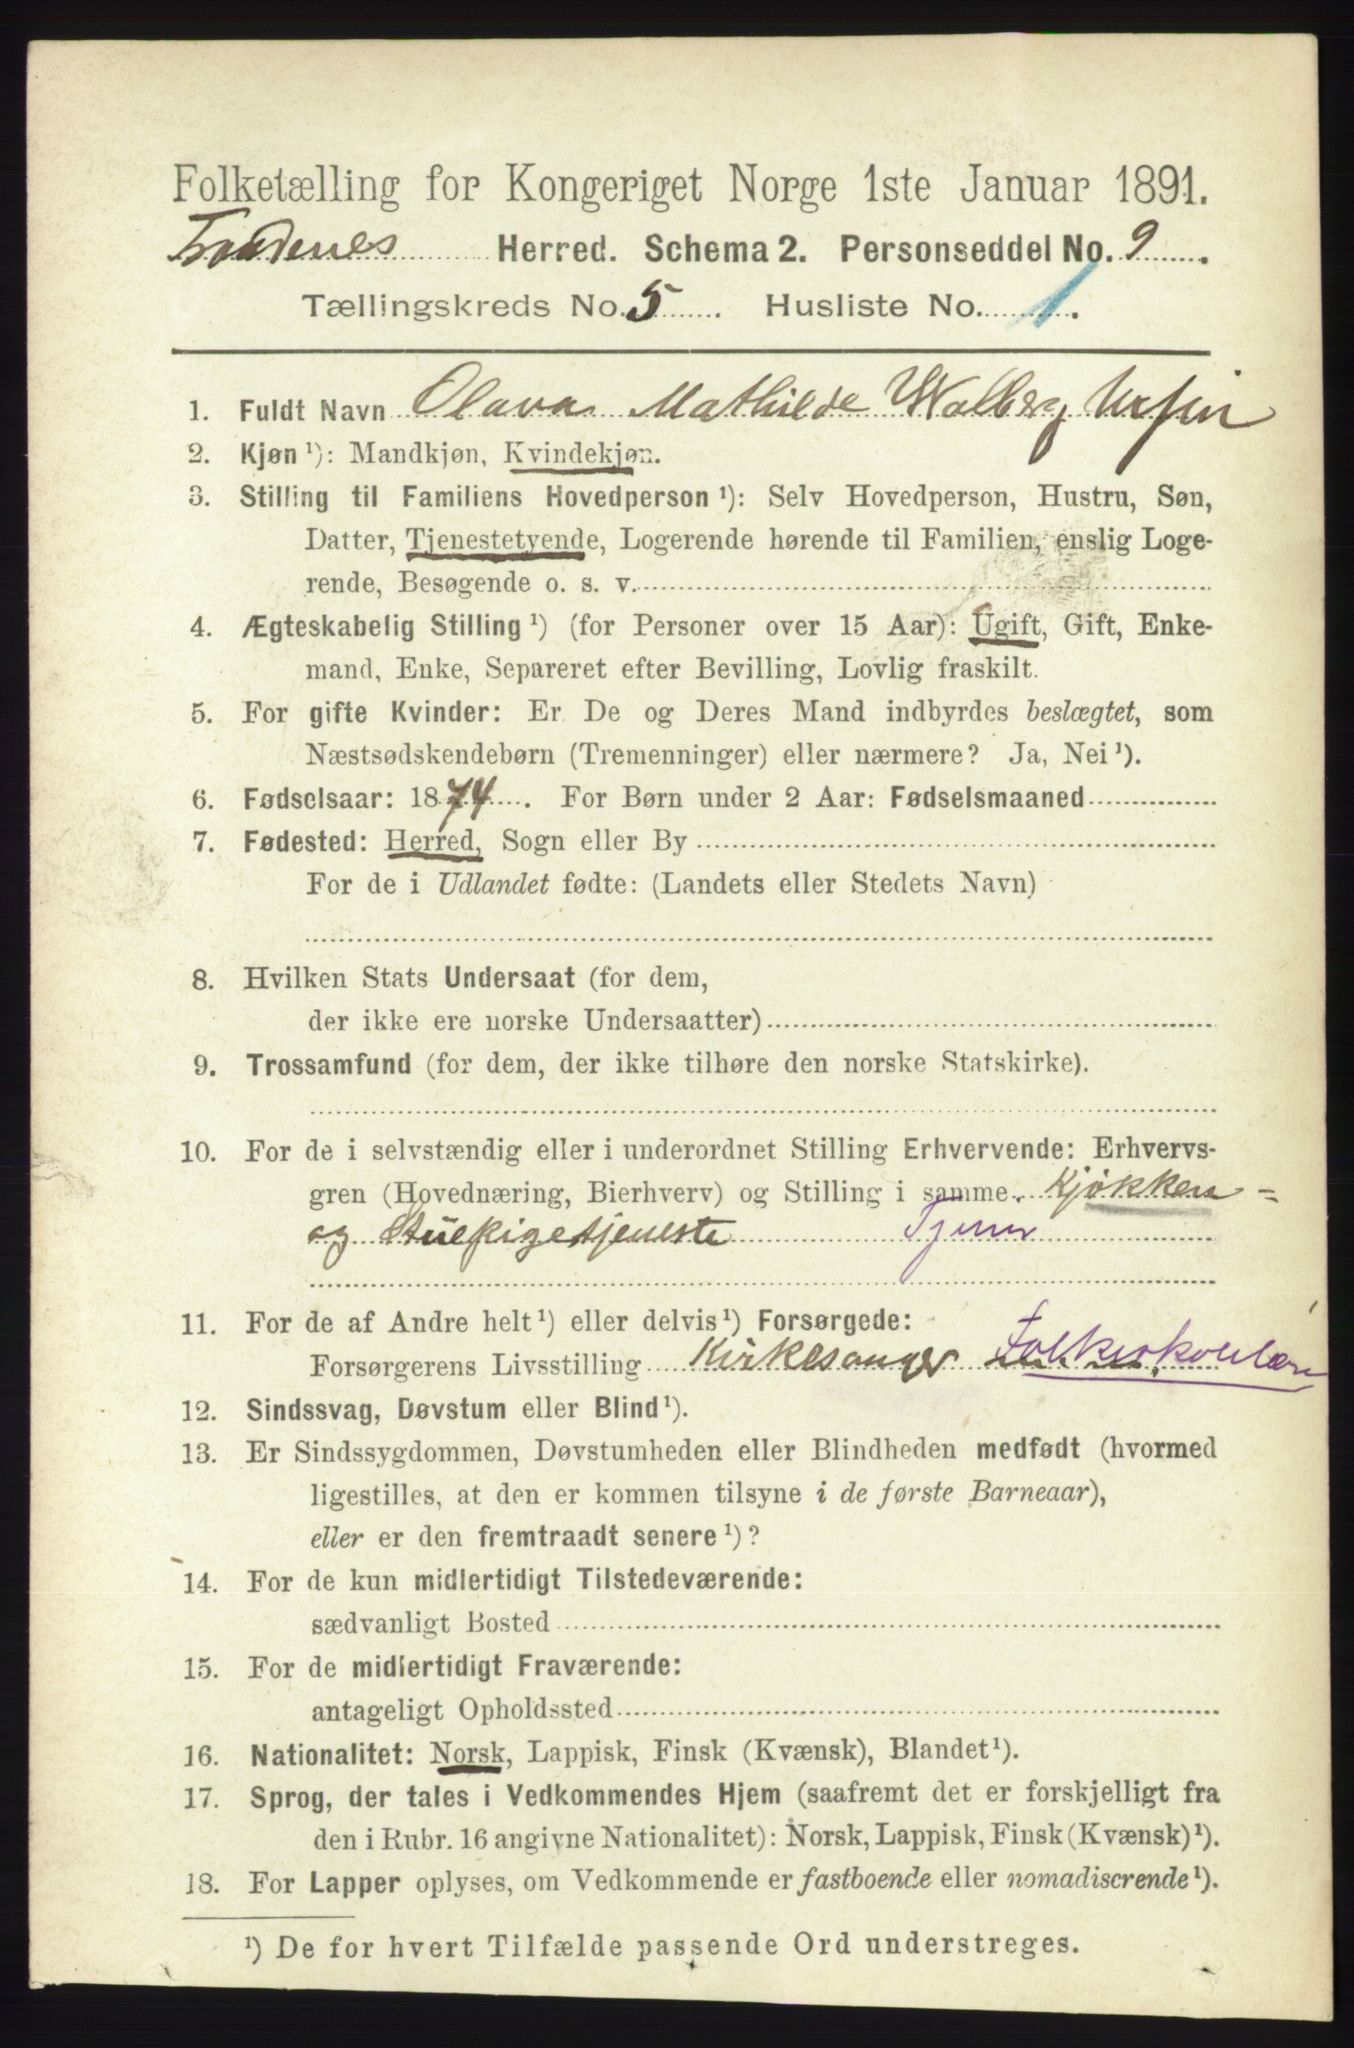 Folketælling for Kongeriget Norge 1ste Januar 1891.
Trondenes Herred. Schema 2. Personseddel No. 9.
Tællingskreds No. 5. Husliste No. 1.
1. Fuldt Navn Olava Mathilde Walberg Ursin
2. Kjøn ¹): Mandkjøn, Kvindekjøn.
3. Stilling til Familiens Hovedperson ¹): Selv Hovedperson, Hustru, Søn,
Datter, Tjenestetyende, Logerende hørende til Familien, enslig Loge-
rende, Besøgende o. s. v.
4. Ægteskabelig Stilling ¹) (for Personer over 15 Aar): Ugift, Gift, Enke-
mand, Enke, Separeret efter Bevilling, Lovlig fraskilt.
5. For gifte Kvinder: Er De og Deres Mand indbyrdes beslægtet, som
Næstsødskendebørn (Tremenninger) eller nærmere? Ja, Nei ¹).
6. Fødselsaar: 1874. For Børn under 2 Aar: Fødselsmaaned
7. Fødested: Herred, Sogn eller By
For de i Udlandet fødte: (Landets eller Stedets Navn)
8. Hvilken Stats Undersaat (for dem,
der ikke ere norske Undersaatter)
9. Trossamfund (for dem, der ikke tilhøre den norske Statskirke).
10. For de i selvstændig eller i underordnet Stilling Erhvervende: Erhvervs-
gren (Hovednæring, Bierhverv) og Stilling i samme. Kjøkken =
og Stuepigetjeneste Tjener
11. For de af Andre helt ¹) eller delvis ¹) Forsørgede:
Forsørgerens Livsstilling Kirkesanger Folkeskolelær
12. Sindssvag, Døvstum eller Blind ¹).
13. Er Sindssygdommen, Døvstumheden eller Blindheden medfødt (hvormed
ligestilles, at den er kommen tilsyne i de første Barneaar),
eller er den fremtraadt senere ¹)?
14. For de kun midlertidigt Tilstedeværende:
sædvanligt Bosted
15. For de midlertidigt Fraværende:
antageligt Opholdssted
16. Nationalitet: Norsk, Lappisk, Finsk (Kvænsk), Blandet ¹).
17. Sprog, der tales i Vedkommendes Hjem (saafremt det er forskjelligt fra
den i Rubr. 16 angivne Nationalitet): Norsk, Lappisk, Finsk (Kvænsk) ¹).
18. For Lapper oplyses, om Vedkommende er fastboende eller nomadiserende ¹).
¹) De for hvert Tilfælde passende Ord understreges.